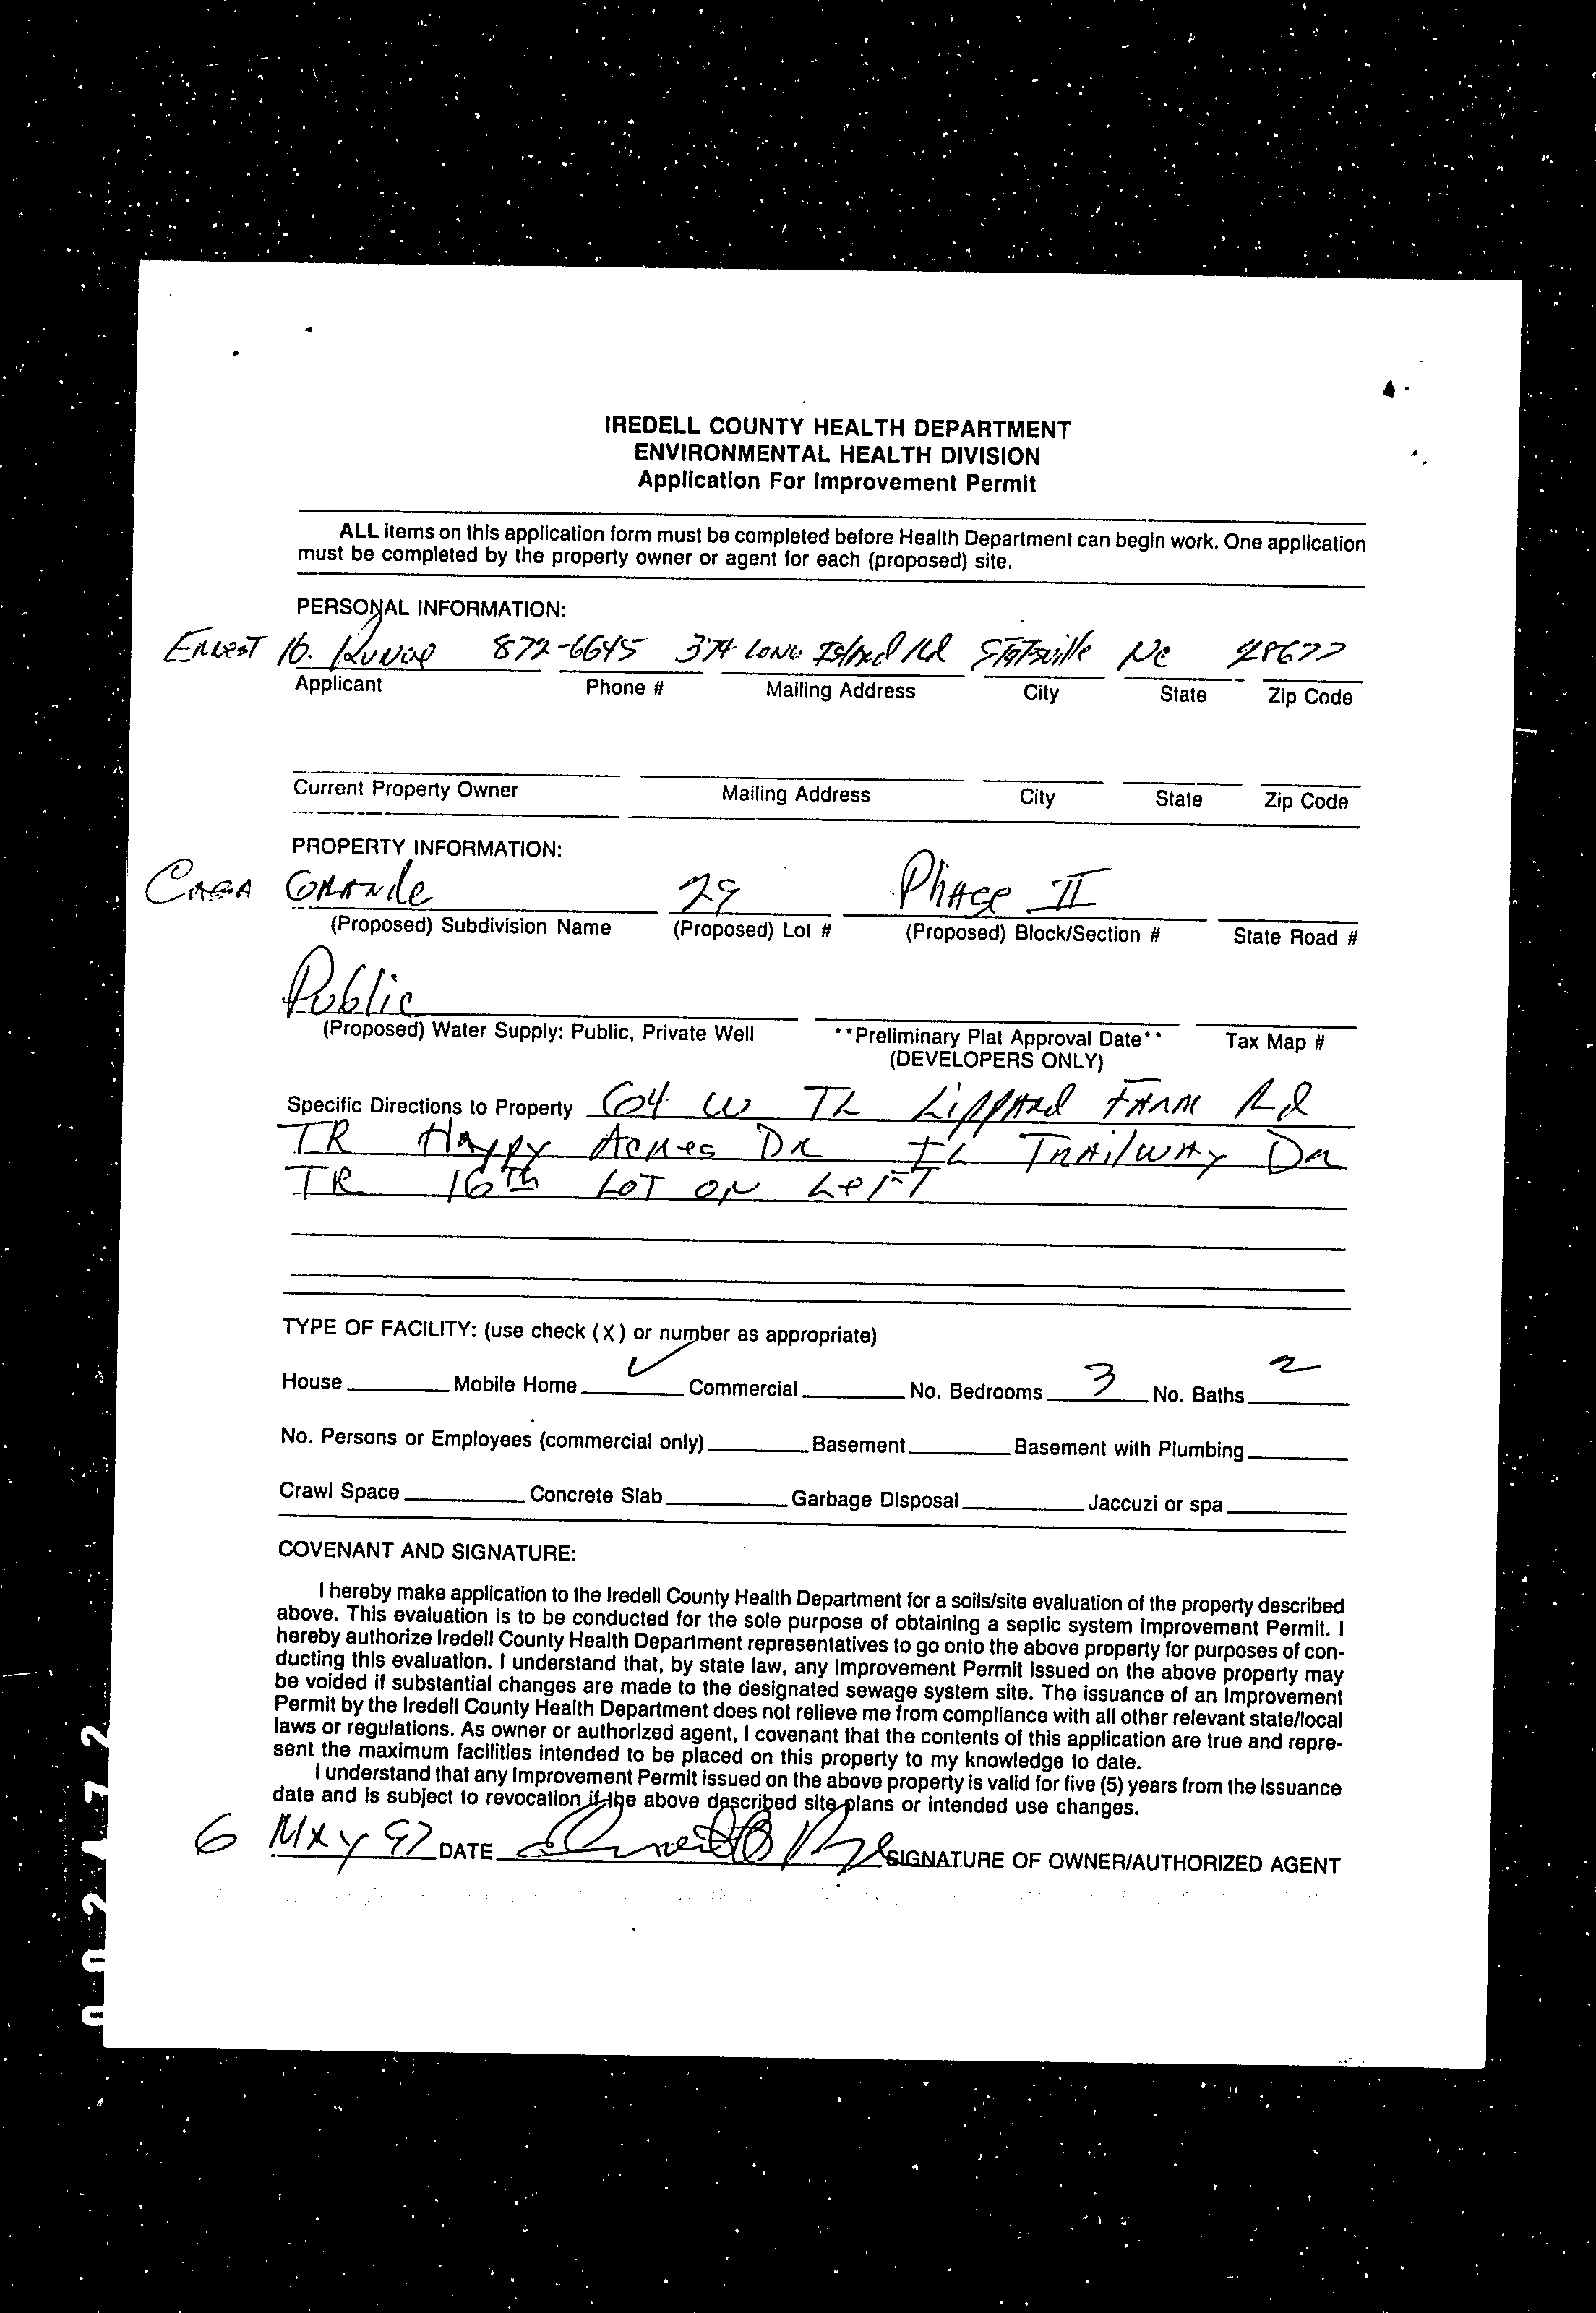 IREDELL COUNTY HEALTH DEPARTMENT
ENVIRONMENTAL HEALTH DIVISION
Application For Improvement Permit
ALL items on this application form must be completed before Health Department can begin work. One application
must be completed by the property owner or agent for each (proposed) site.
PERSONAL INFORMATION:
Ernest 872-6645 374 Long Island Rd Statsville NC 28677
Applicant Phone # Mailing Address City State Zip Code
Current Property Owner Mailing Address City State Zip Code
PROPERTY INFORMATION:
CASA GRANde 29 PhAse II
(Proposed) Subdivision Name (Proposed) Lot # (Proposed) Block/Section # State Road #
Public
(Proposed) Water Supply: Public, Private Well **Preliminary Plat Approval Date** Tax Map #
(DEVELOPERS ONLY)
Specific Directions to Property 64 W TL LippARd FARM Rd
TR HAppy Acres DR TL TRAilwAy DR
TR 16th LOT ON LeFT
TYPE OF FACILITY: (use check (X) or number as appropriate)
House Mobile Home ✓ Commercial No. Bedrooms 3 No. Baths 2
No. Persons or Employees (commercial only) Basement Basement with Plumbing
Crawl Space Concrete Slab Garbage Disposal Jaccuzi or spa
COVENANT AND SIGNATURE:
I hereby make application to the Iredell County Health Department for a soils/site evaluation of the property described
above. This evaluation is to be conducted for the sole purpose of obtaining a septic system Improvement Permit. I
hereby authorize Iredell County Health Department representatives to go onto the above property for purposes of con-
ducting this evaluation. I understand that, by state law, any Improvement Permit issued on the above property may
be voided if substantial changes are made to the designated sewage system site. The issuance of an Improvement
Permit by the Iredell County Health Department does not relieve me from compliance with all other relevant state/local
laws or regulations. As owner or authorized agent, I covenant that the contents of this application are true and repre-
sent the maximum facilities intended to be placed on this property to my knowledge to date.
I understand that any Improvement Permit issued on the above property is valid for five (5) years from the issuance
date and is subject to revocation if the above described site plans or intended use changes.
6 MAy 97 DATE SIGNATURE OF OWNER/AUTHORIZED AGENT